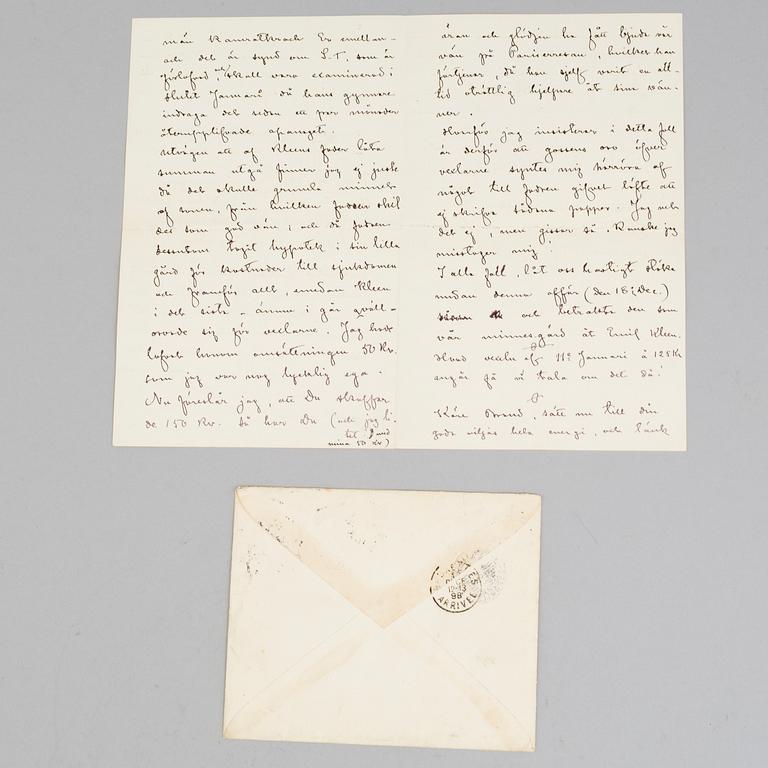 män Kamratkrach Er emellan -
och det är synd om S.T. som är
förlofad skall vara examinerad i
slutet Januari då hans gynnare
indraga det sedan ett par månader
återupplifvade apanaget.
Utvägen att af Kleens fader låta
summan utgå finner jag ej juste
då det skulle grumla minnet
af sonen, från hvilken fadren skil
des som god vän; och då fadren
dessutom tagit hypotek i sin lilla
gård för kostnader till sjukdomen
och framför allt, emedan Kleen
i det sista - ännu i går qväll -
oroade sig för vexlarne. Jag har
lofvat honom omsättningen 50 Kr.
som jag var nog lycklig ega.
Nu föreslår jag, att Du skaffar
de 150 Kr. Så har Du (och jag li-
tet med
mina 50 Kr)
äran och glädjen ha fått bjuda vår
vän på Parisresan, hvilket han
förtjenar, då han sjelf varit en all-
tid otröttlig hjelpare åt sina vän-
ner.
Hvarför jag insisterar i detta fall
är derför att gossens oro öfver
vexlarne syntes mig härröra af
något till fadren gifvet löfte att
ej skrifva sådana papper. Jag vet
det ej, men gissar så. Kanske jag
misstager mig!
I alla fall, låt oss hastigt stöka
undan denna affär (den 18e Dec.)
och betrakta den som
vår minnesgärd åt Emil Kleen.
Hvad vexeln af 11e Januari à 125 Kr
angår få vi tala om det då!
Käre Brand, sätt nu till din
goda viljas hela energi, och tänk
98
ARRIVEE